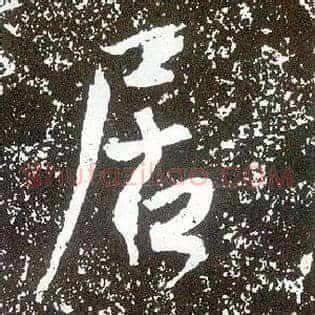 居
shufaziliao.COM